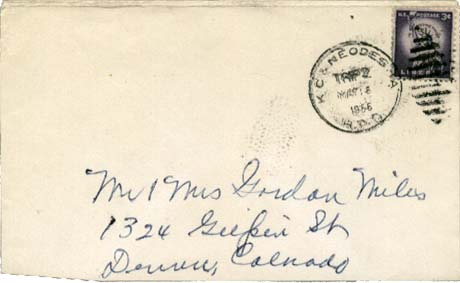 U.S. POSTAGE 3¢
LIBERTY
K.C. & NEODESHA
TRIP 2
MAY
1956
R.P.O.
Mr & Mrs Gordon Miles
1324 Gilpin St
Denver, Colorado